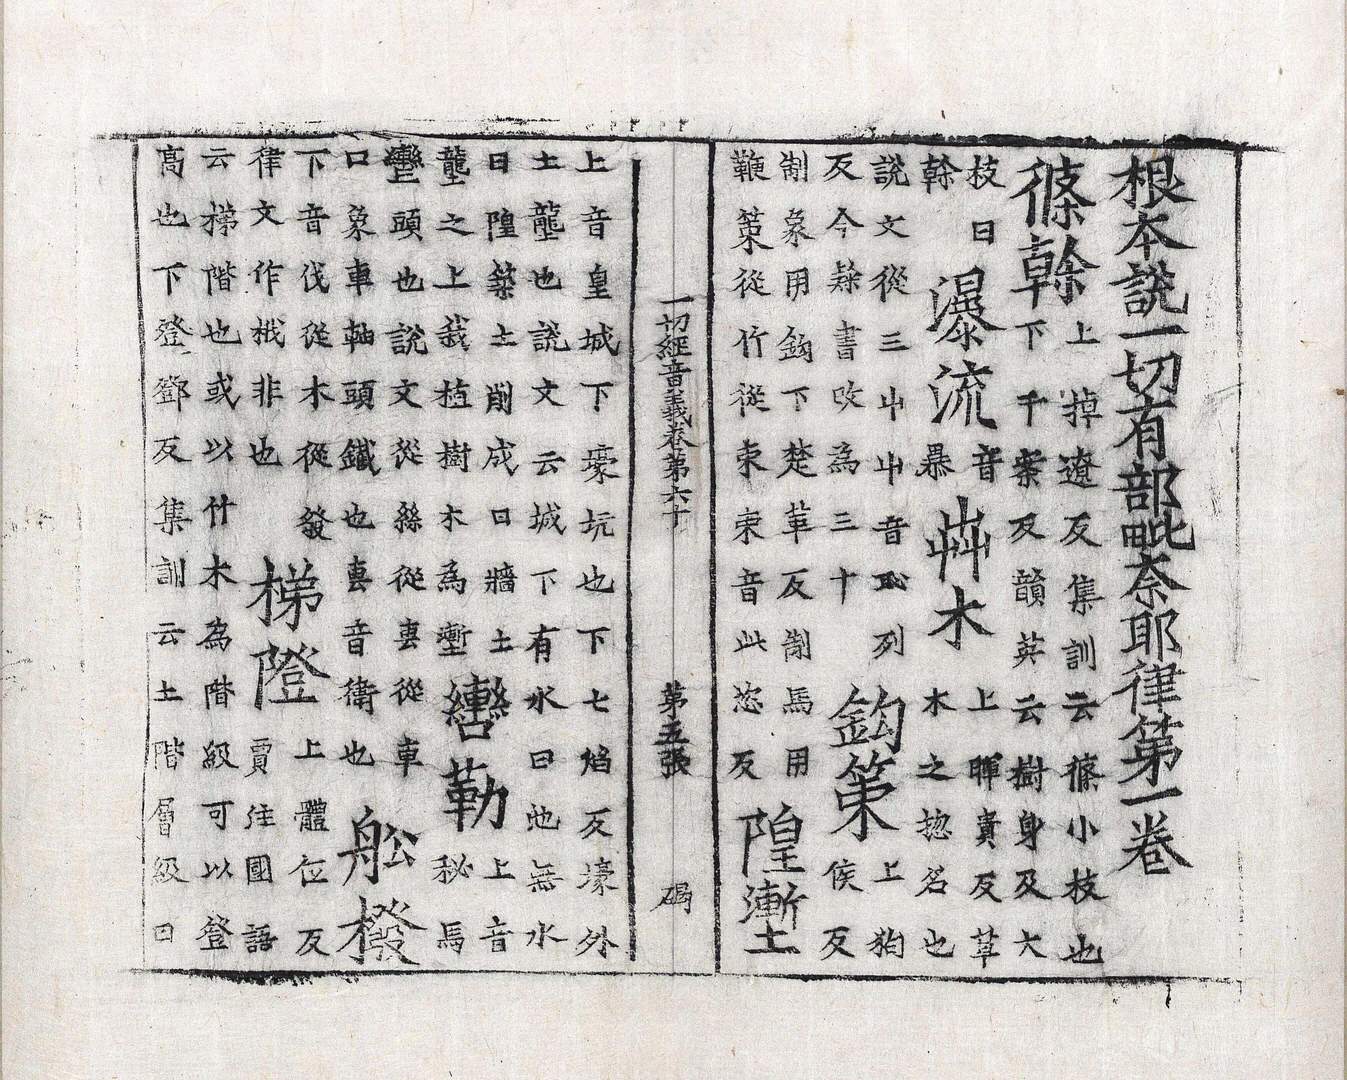 根本說一切有部毗柰耶律第一卷
條幹 上掉遼反集訓云條小枝也
下干案反韻英云樹身及大
枝曰
幹 瀑流 音
暴 芔木 上暉貴反草
木之惣名也
說文從三屮屮音丑列
反今隸書改為三十 鈎策 上狗
侯反
制象用鈎下楚革反制馬用
鞭策從竹從朿朿音此恣反 隍塹
一切經音義卷第六十 第五張 碣
上音皇城下壕坑也下七焰反壕外
土壟也說文云城下有水曰池無水
曰隍築土削成曰牆土
壟之上栽植樹木為塹 轡勒 上音
秘馬
轡頭也說文從絲從軎從車
口象車軸頭鐵也軎音衛也 舩橃
下音伐從木從發
律文作栰非也 梯隥 上體伍反
賈注國語
云梯階也或以竹木為階級可以登
高也下登鄧反集訓云土階層級曰